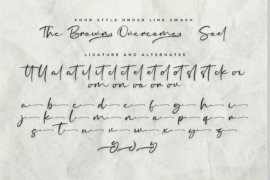 FOUR STYLE UNDER LINE SWASH
The Browns Overcomes Soul
LIGATURE AND ALTERNATES
tt ll al at el it cl et el ot ol st ck or
om on oa or ov
a b c d e f g h i
j k l m n o p q r
s t u v w x y z